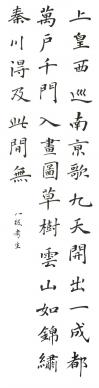 上皇西巡南京歌九天開出一成都
萬戶千門入畫圖草樹雲山如錦繡
秦川得及此間無